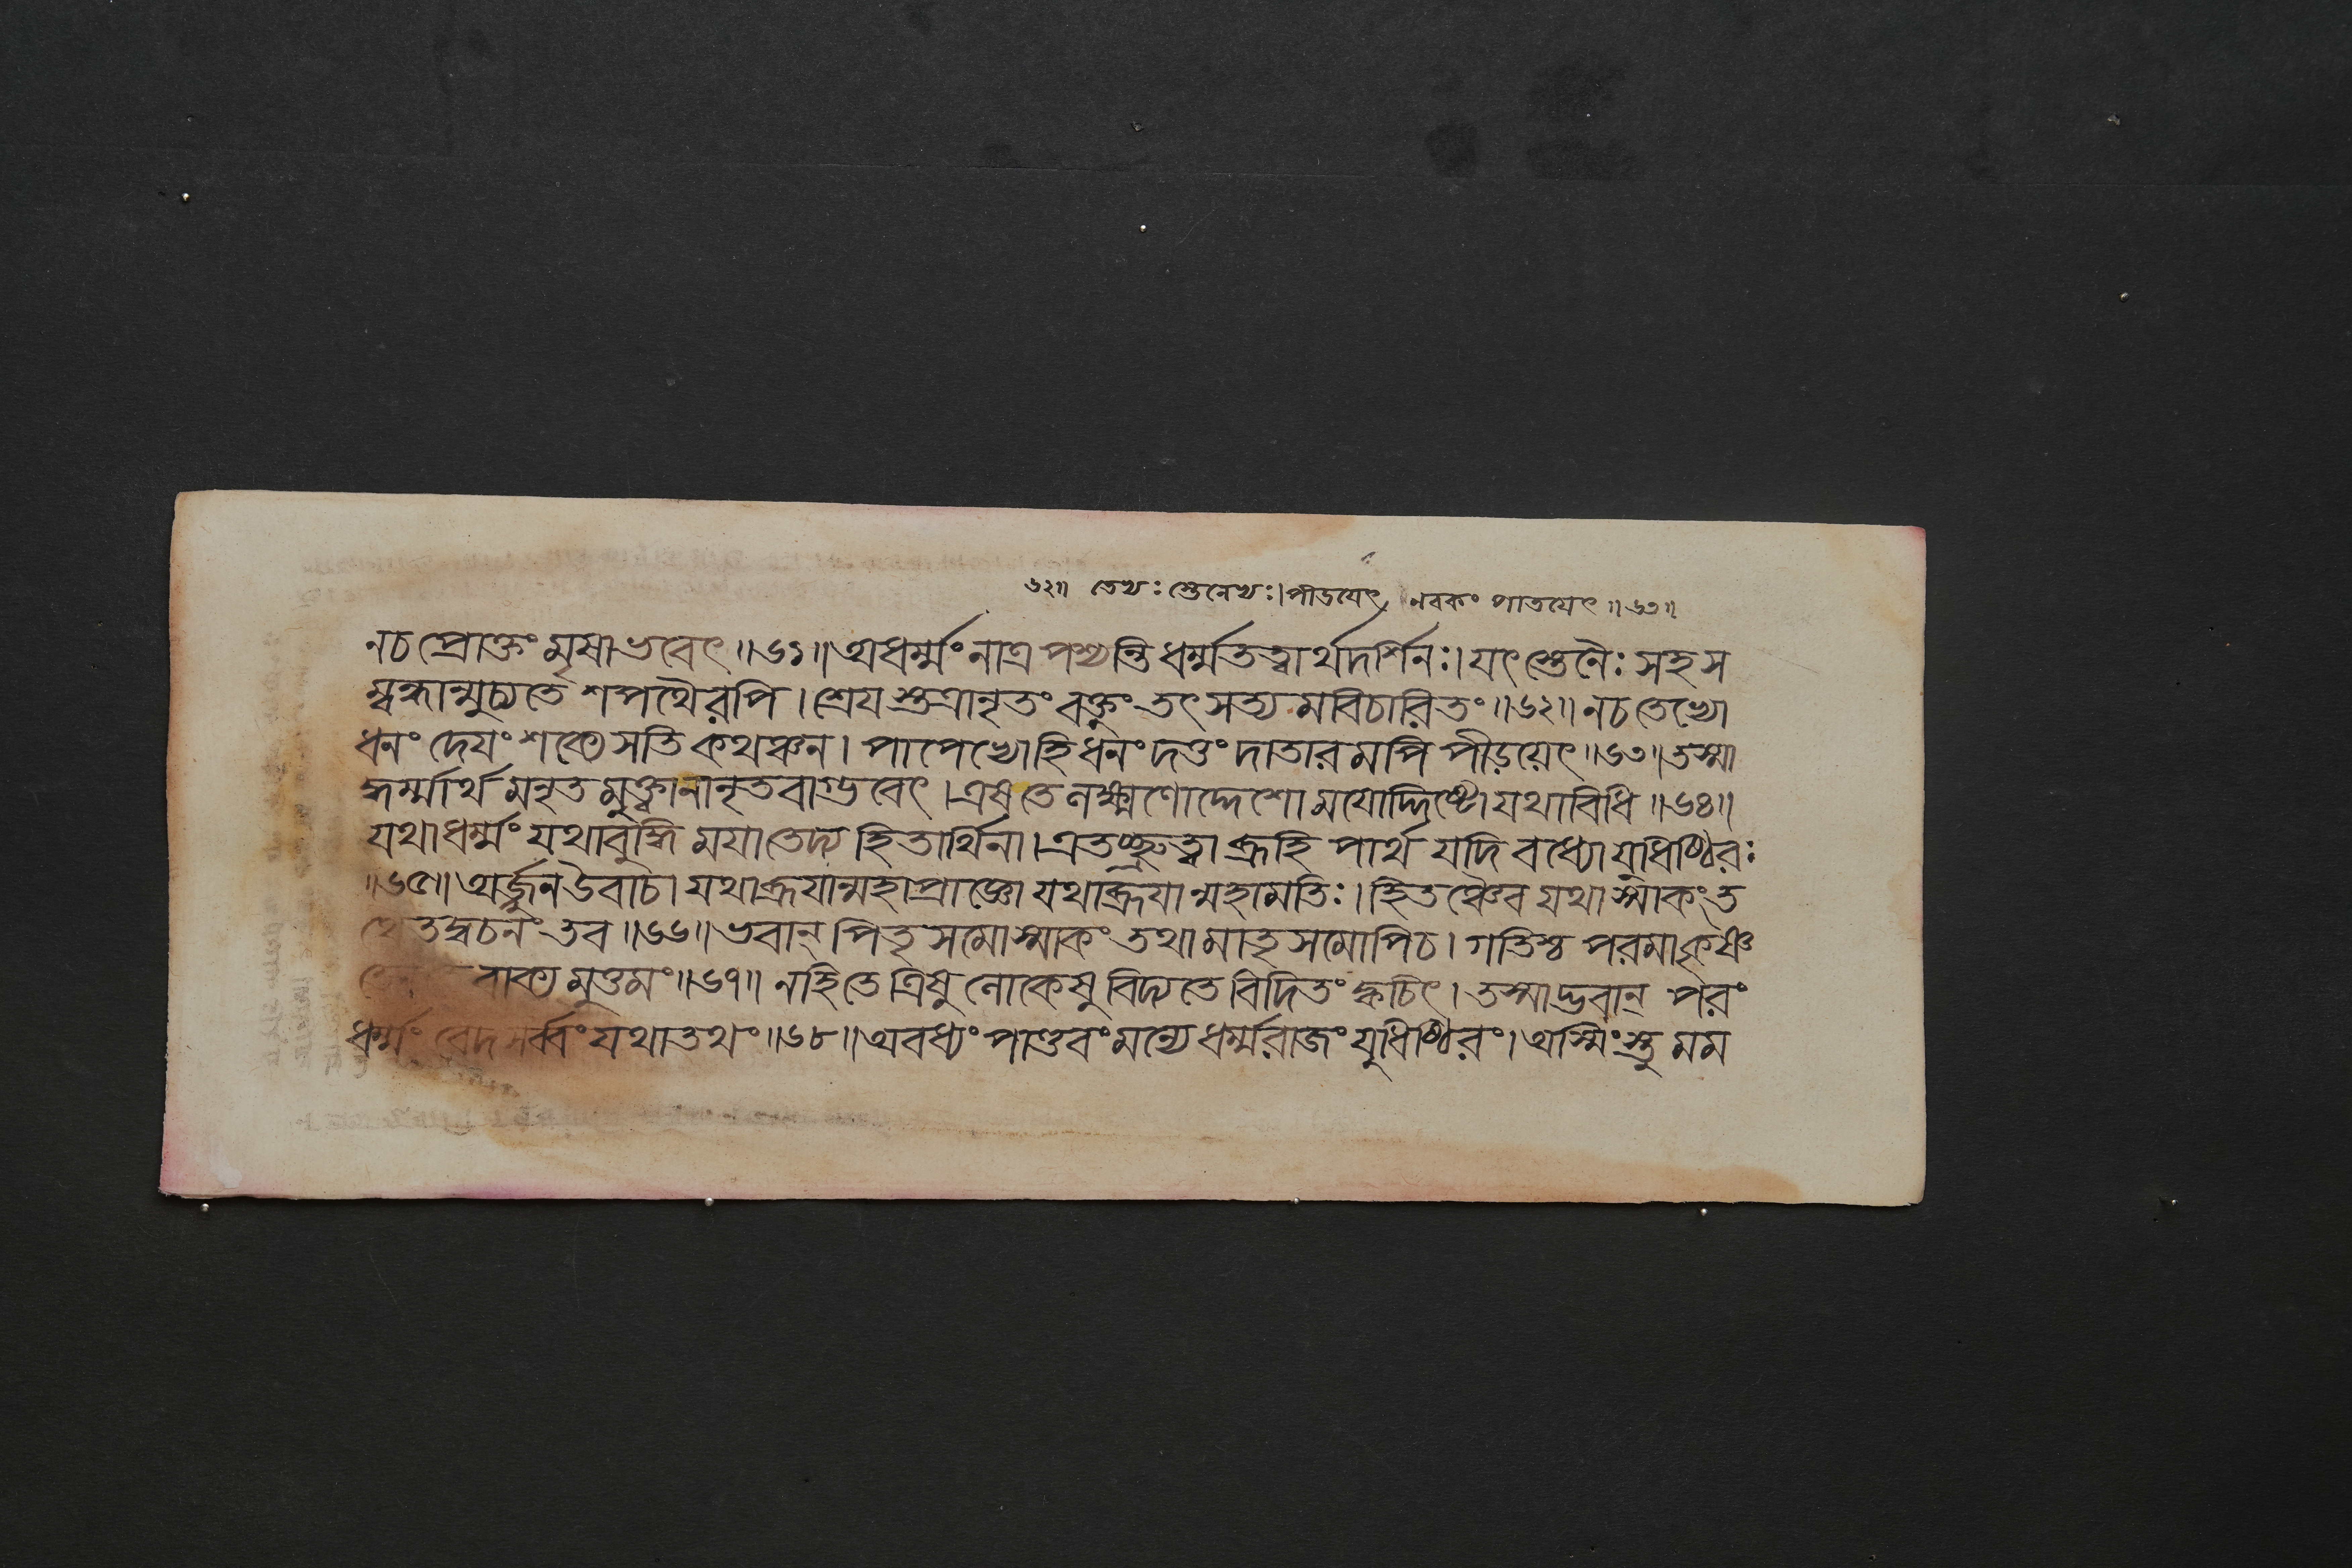 ৬২॥ তেখঃ স্তেনেখঃ। পীডযেৎ নবকং পাতযেৎ ॥৬৩॥
নচ প্রোক্তং মৃষা ভবেৎ ॥৬১॥ অধর্ম্মং নাত্র পশ্যন্তি ধর্ম্মতত্ত্বার্থদর্শিনঃ। যৎ স্তেনৈঃ সহ স
ম্বন্ধান্মুচ্যতে শপথৈরপি। শ্রেয স্তত্রানৃতং বক্তুং তৎ সত্য মবিচারিতং ॥৬২॥ নচ তেভ্যো
ধনং দেযং শক্যে সতি কথঞ্চন। পাপেভ্যো হি ধনং দত্তং দাতার মপি পীড়য়েৎ ॥৬৩॥ তস্মা
দ্ধর্ম্মার্থ মনৃত মুক্ত্বা নানৃতবাগ্ভবেৎ। এষ তে লক্ষণোদ্দেশো মযোদ্দিষ্টো যথাবিধি ॥৬৪॥
যথাধর্ম্মং যথাবুদ্ধি মযা তেদ্য হিতার্থিনা। এতচ্ছ্রুত্বা ব্রূহি পার্থ যদি বধ্যো যুধিষ্ঠিরঃ
॥৬৫॥ অর্জ্জুন উবাচ। যথা ব্রূযান্মহাপ্রাজ্ঞো যথা ব্রূযান্মহামতিঃ। হিতঞ্চৈব যথাস্মাকং ত
থৈতদ্বচনং তব ॥৬৬॥ ভবান্ পিতৃসমোস্মাকং তথা মাতৃসমোপিচ। গতিশ্চ পরমা কৃষ্ণ
তেন বাক্য মুত্তমং ॥৬৭॥ নহি তে ত্রিষু লোকেষু বিদ্যতে বিদিতং ক্বচিৎ। তস্মাদ্ভবান্ পরং
ধর্ম্মং বেদ সর্ব্বং যথাতথং ॥৬৮॥ অবধ্যং পাণ্ডবং মন্যে ধর্ম্মরাজং যুধিষ্ঠিরং। অস্মিংস্তু মম